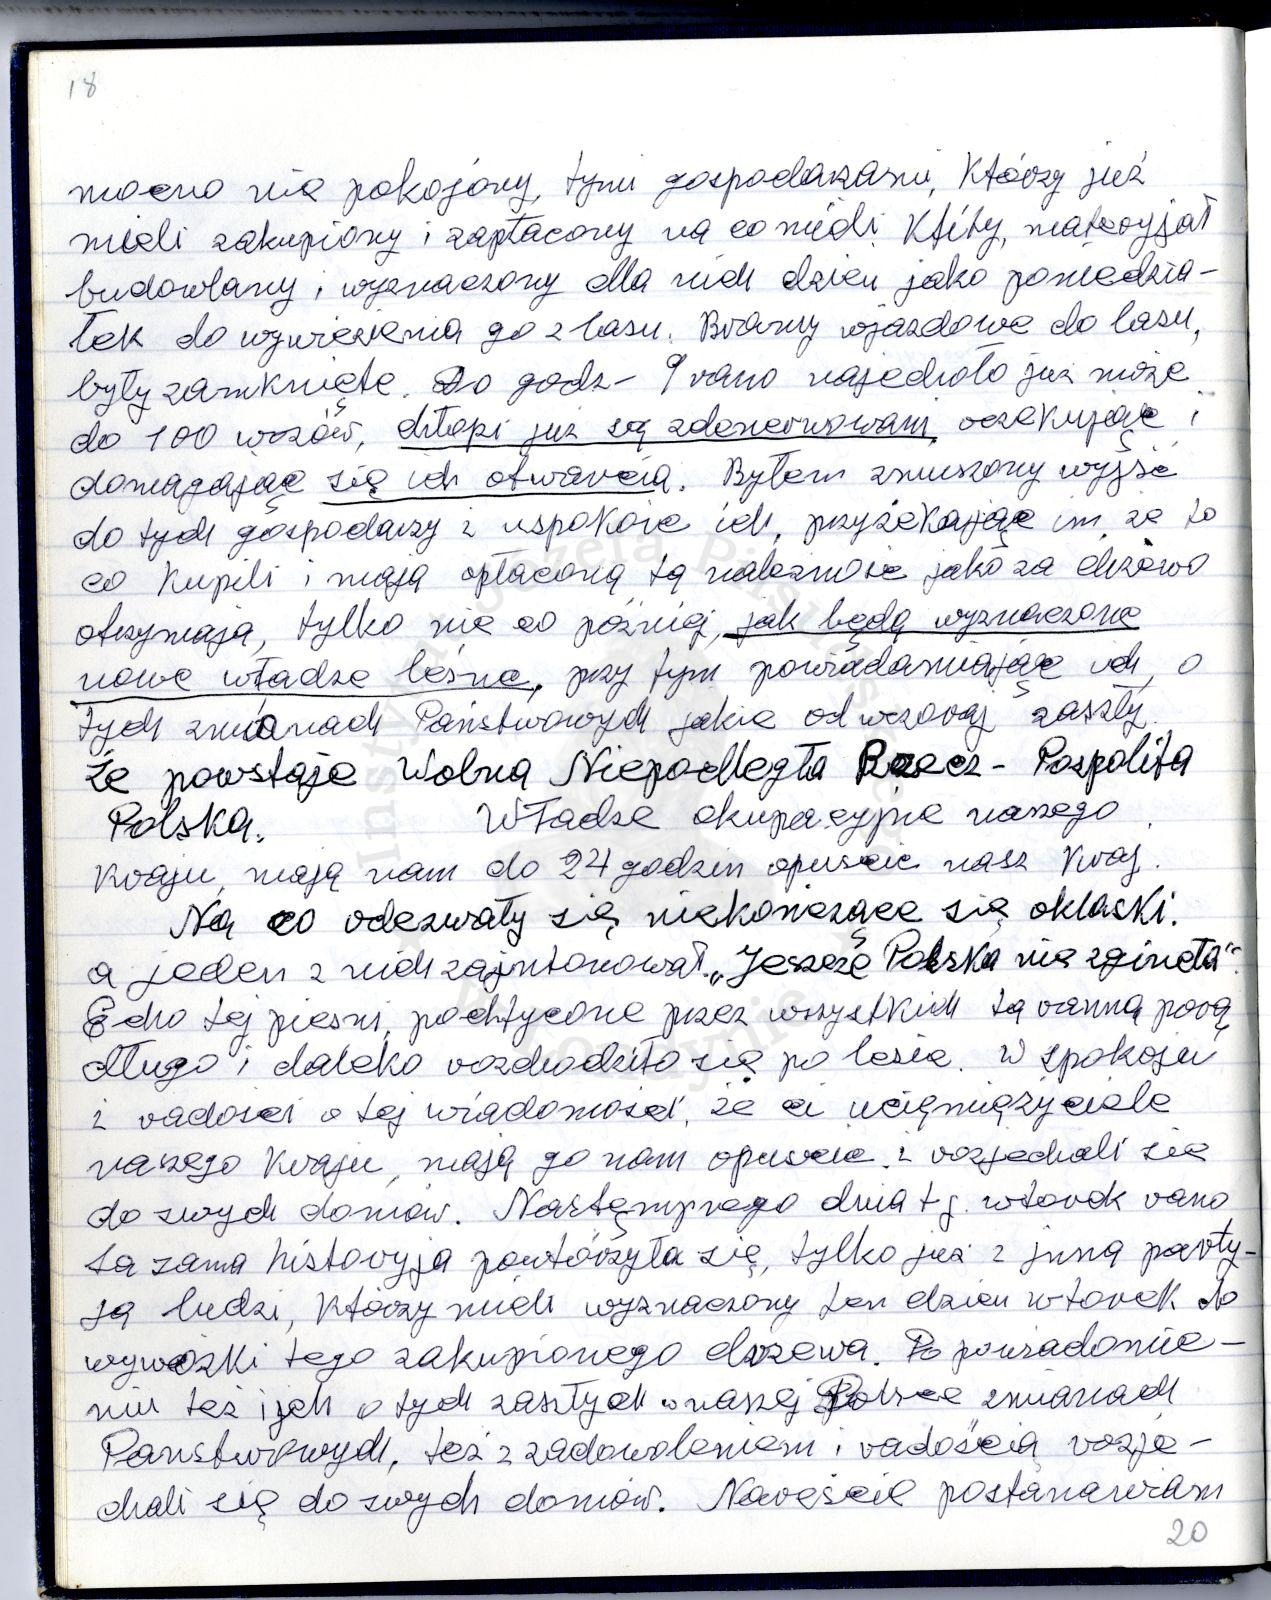 18
mocno nie pokojóny, tymi gospodarzami, Którzy już
mieli zakupiony i zapłacony na co mieli Kfity, materyjał
budowlany i wyznaczony dla nich dzień jako poniedzia-
łek do wywiezienia go z lasu. Bramy wjazdowe do lasu,
były zamknięte. Do godz- 9 rano najechało już może
do 100 wozów, chłopi już są zdenerwowani, oczekując i
domagając się ich otwarcia. Byłem zmuszony wyjść
do tych gospodarzy i uspokoić ich, przyżekając im, że to
co Kupili i mają opłaconą tą należność jako za drzewo
otrzymają, tylko nie co później, jak będą wyznaczone
nowe władze leśne, przy tym powiadamiając ich, o
tych zmianach Państwowych jakie od wczoraj zaszły.
że powstaje Wolna Niepodległa Rzecz- Pospolita
Polska. Władze okupacyjne naszego
Kraju, mają nam do 24 godzin opuścić nasz Kraj.
Na co odezwały się niekończące się oklaski.
a jeden z nich zajntonował „Jeszcze Polska nie zgineła".
Echo tej pieśni, podchycone przez wszystkich tą ranną porą
długo i daleko rozchodziło się po lesie. W spokoju
i radości o tej wiadomości, że ci uciemiężyciele
naszego Kraju, mają go nam opuścić i rozjechali sie
do swych domów. Następnego dnia t j. wtorek rano
ta sama historyja powtórzyła się, tylko już z jnną party-
ją ludzi, Którzy mieli wyznaczony ten dzień wtorek do
wywózki tego zakupionego drzewa. Po powiadomie-
niu też i jch o tych zaszłych w naszej Polsce zmianach
Państwowych, też z zadowoleniem i radością rozje-
chali się do swych domów. Nareście postanawiam
20
Instytut Józefa Piłsudskiego
w Londynie